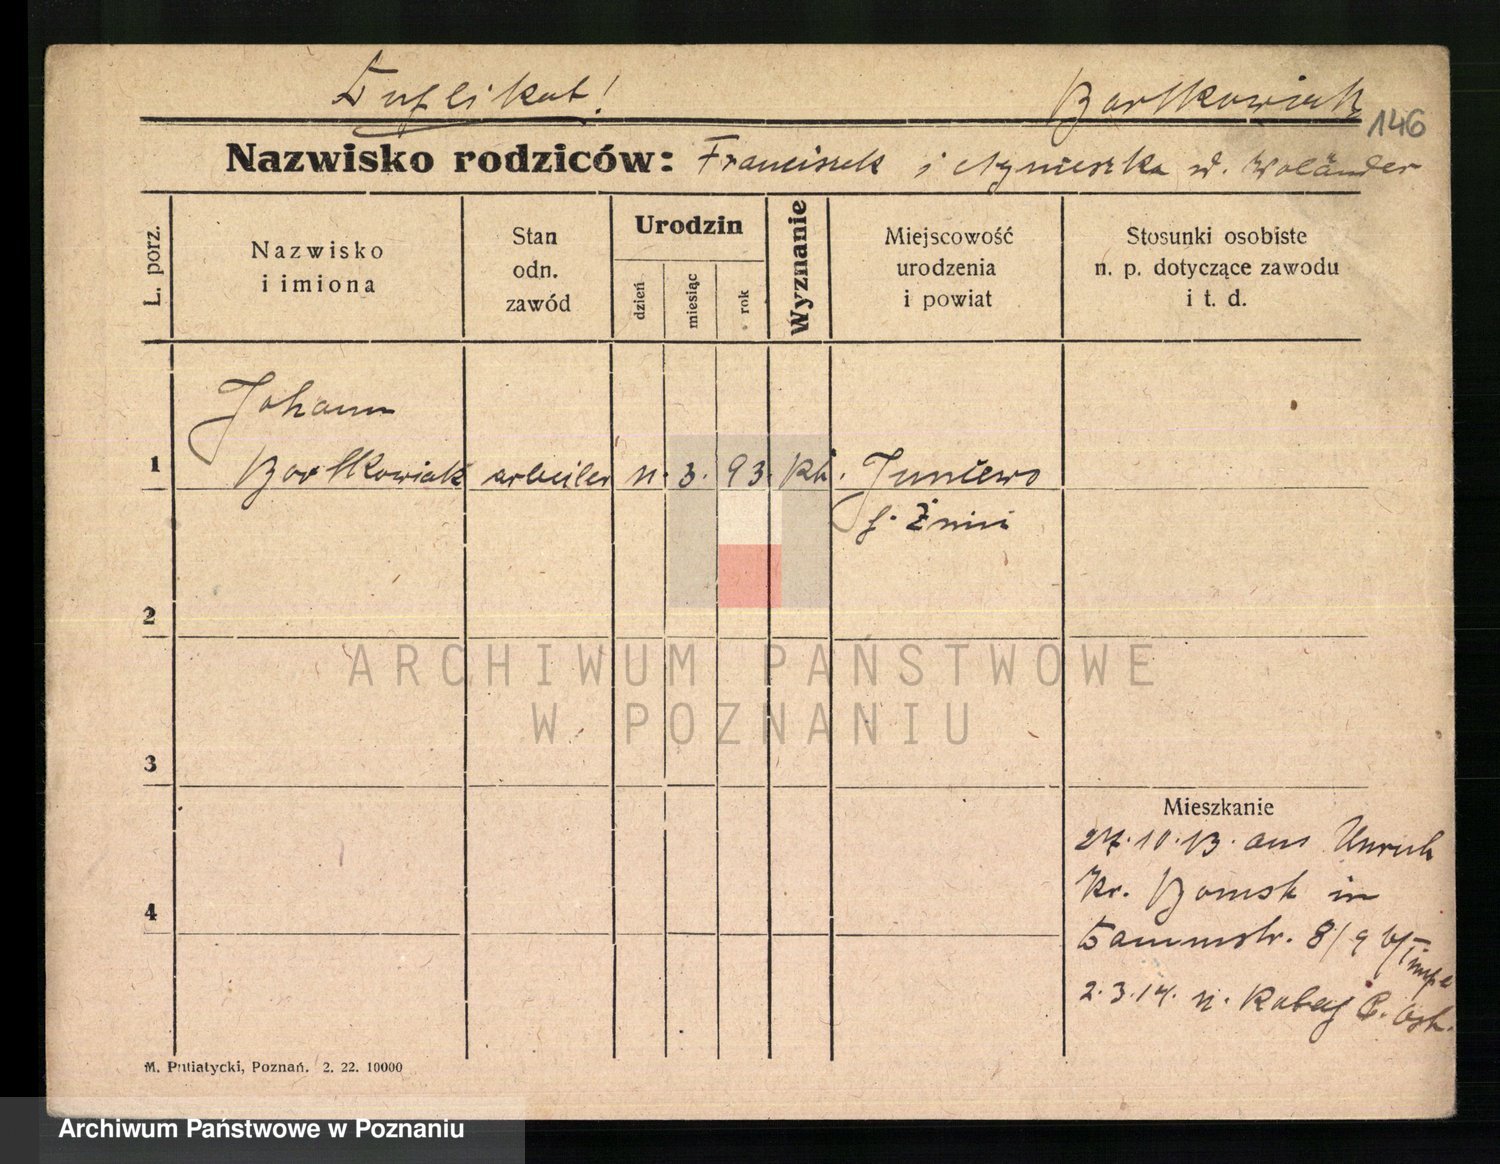 Duplikat!
Bartkowiak
146
Nazwisko rodziców: Franciszek i Agnieszka
L. porz.
Nazwisko
i imiona
Stan
odn.
zawód
Urodzin
dzień
miesiąc
rok
Wyznanie
Miejscowość
urodzenia
i powiat
Stosunki osobiste
n. p. dotyczące zawodu
i t. d.
Johann
1 Bartkowiak arbeiter 11. 3. 93. kth. Juncewo
2
3
Mieszkanie
27.10.13. aus Unruh
Kr. Bomst in
4
Dammstr. 8/9 b/
2.3.14. n.
M. Putiatycki, Poznań. 2. 22. 10000
ARCHIWUM PAŃSTWOWE
W POZNANIU
Archiwum Państwowe w Poznaniu